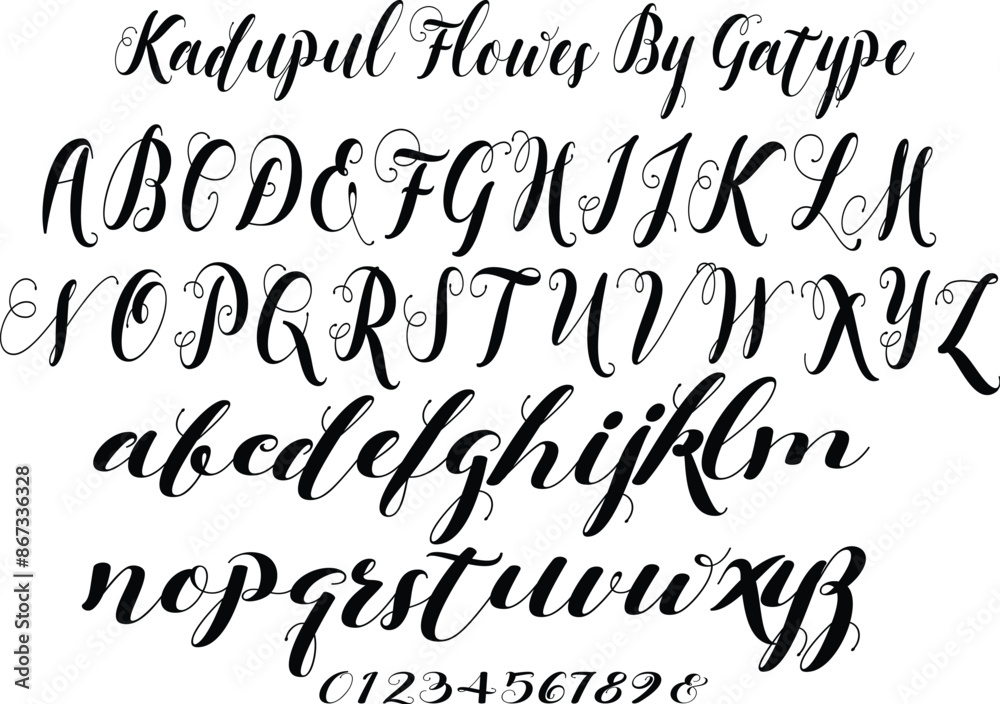 Kadupul Flowes By Gatype
A B C D E F G H I J K L M
N O P Q R S T U V W X Y Z
abcdefghijklm
nopqrstuvwxyz
0123456789&
Adobe Stock | #867336328